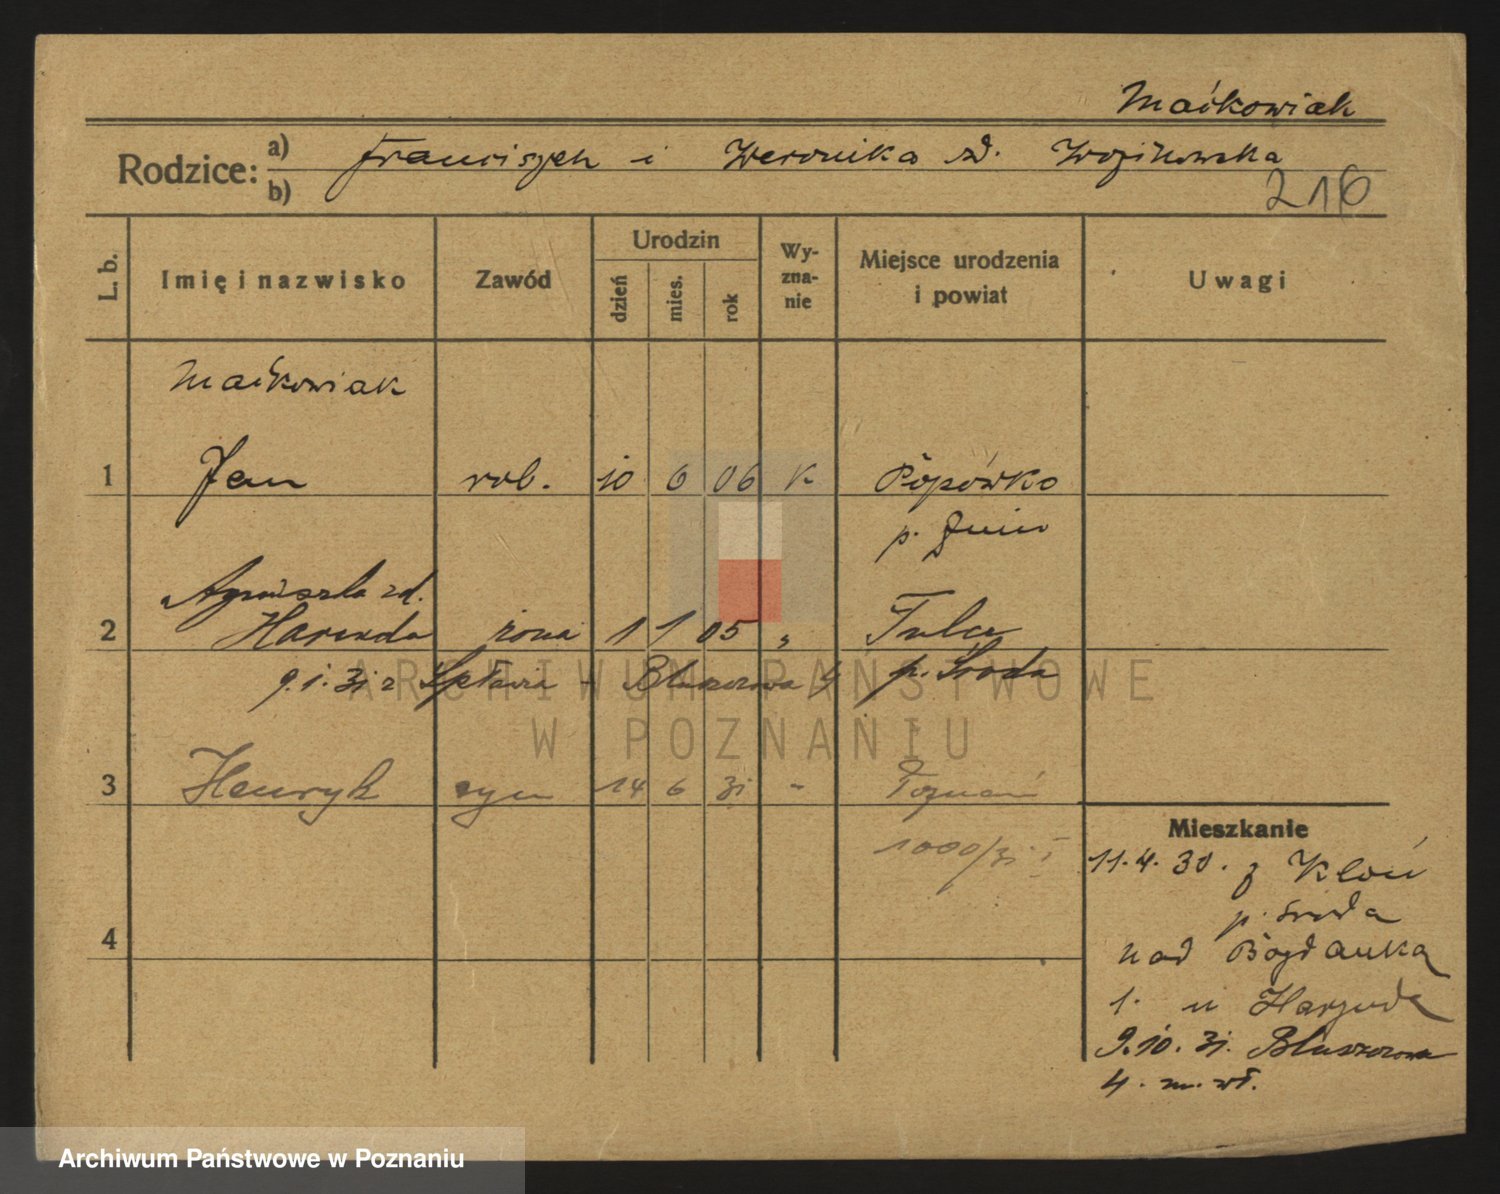 Maćkowiak
Rodzice: a) Franciszek i Weronika zd. Wojtkowska
b)
216
L. b. Imię i nazwisko Zawód Urodzin dzień mies. rok Wy-zna-nie Miejsce urodzenia i powiat Uwagi
Maćkowiak
1 Jan rob. 10 6 06 K Popówko
p. Żnin
Agnieszka zd.
2 Haremda żona 1 1 05 " Tulce
9.1.31 z Spławia - Bluszczowa 4 p. Środa
3 Henryk syn 14 6 31 " Poznań
1000/31 I
4
Mieszkanie
11.4.30. z Kłoń
p. Środa
nad Bogdanką
1. u
9.10.31. Bluszczowa
4. m. wł.
ARCHIWUM PAŃSTWOWE
W POZNANIU
Archiwum Państwowe w Poznaniu